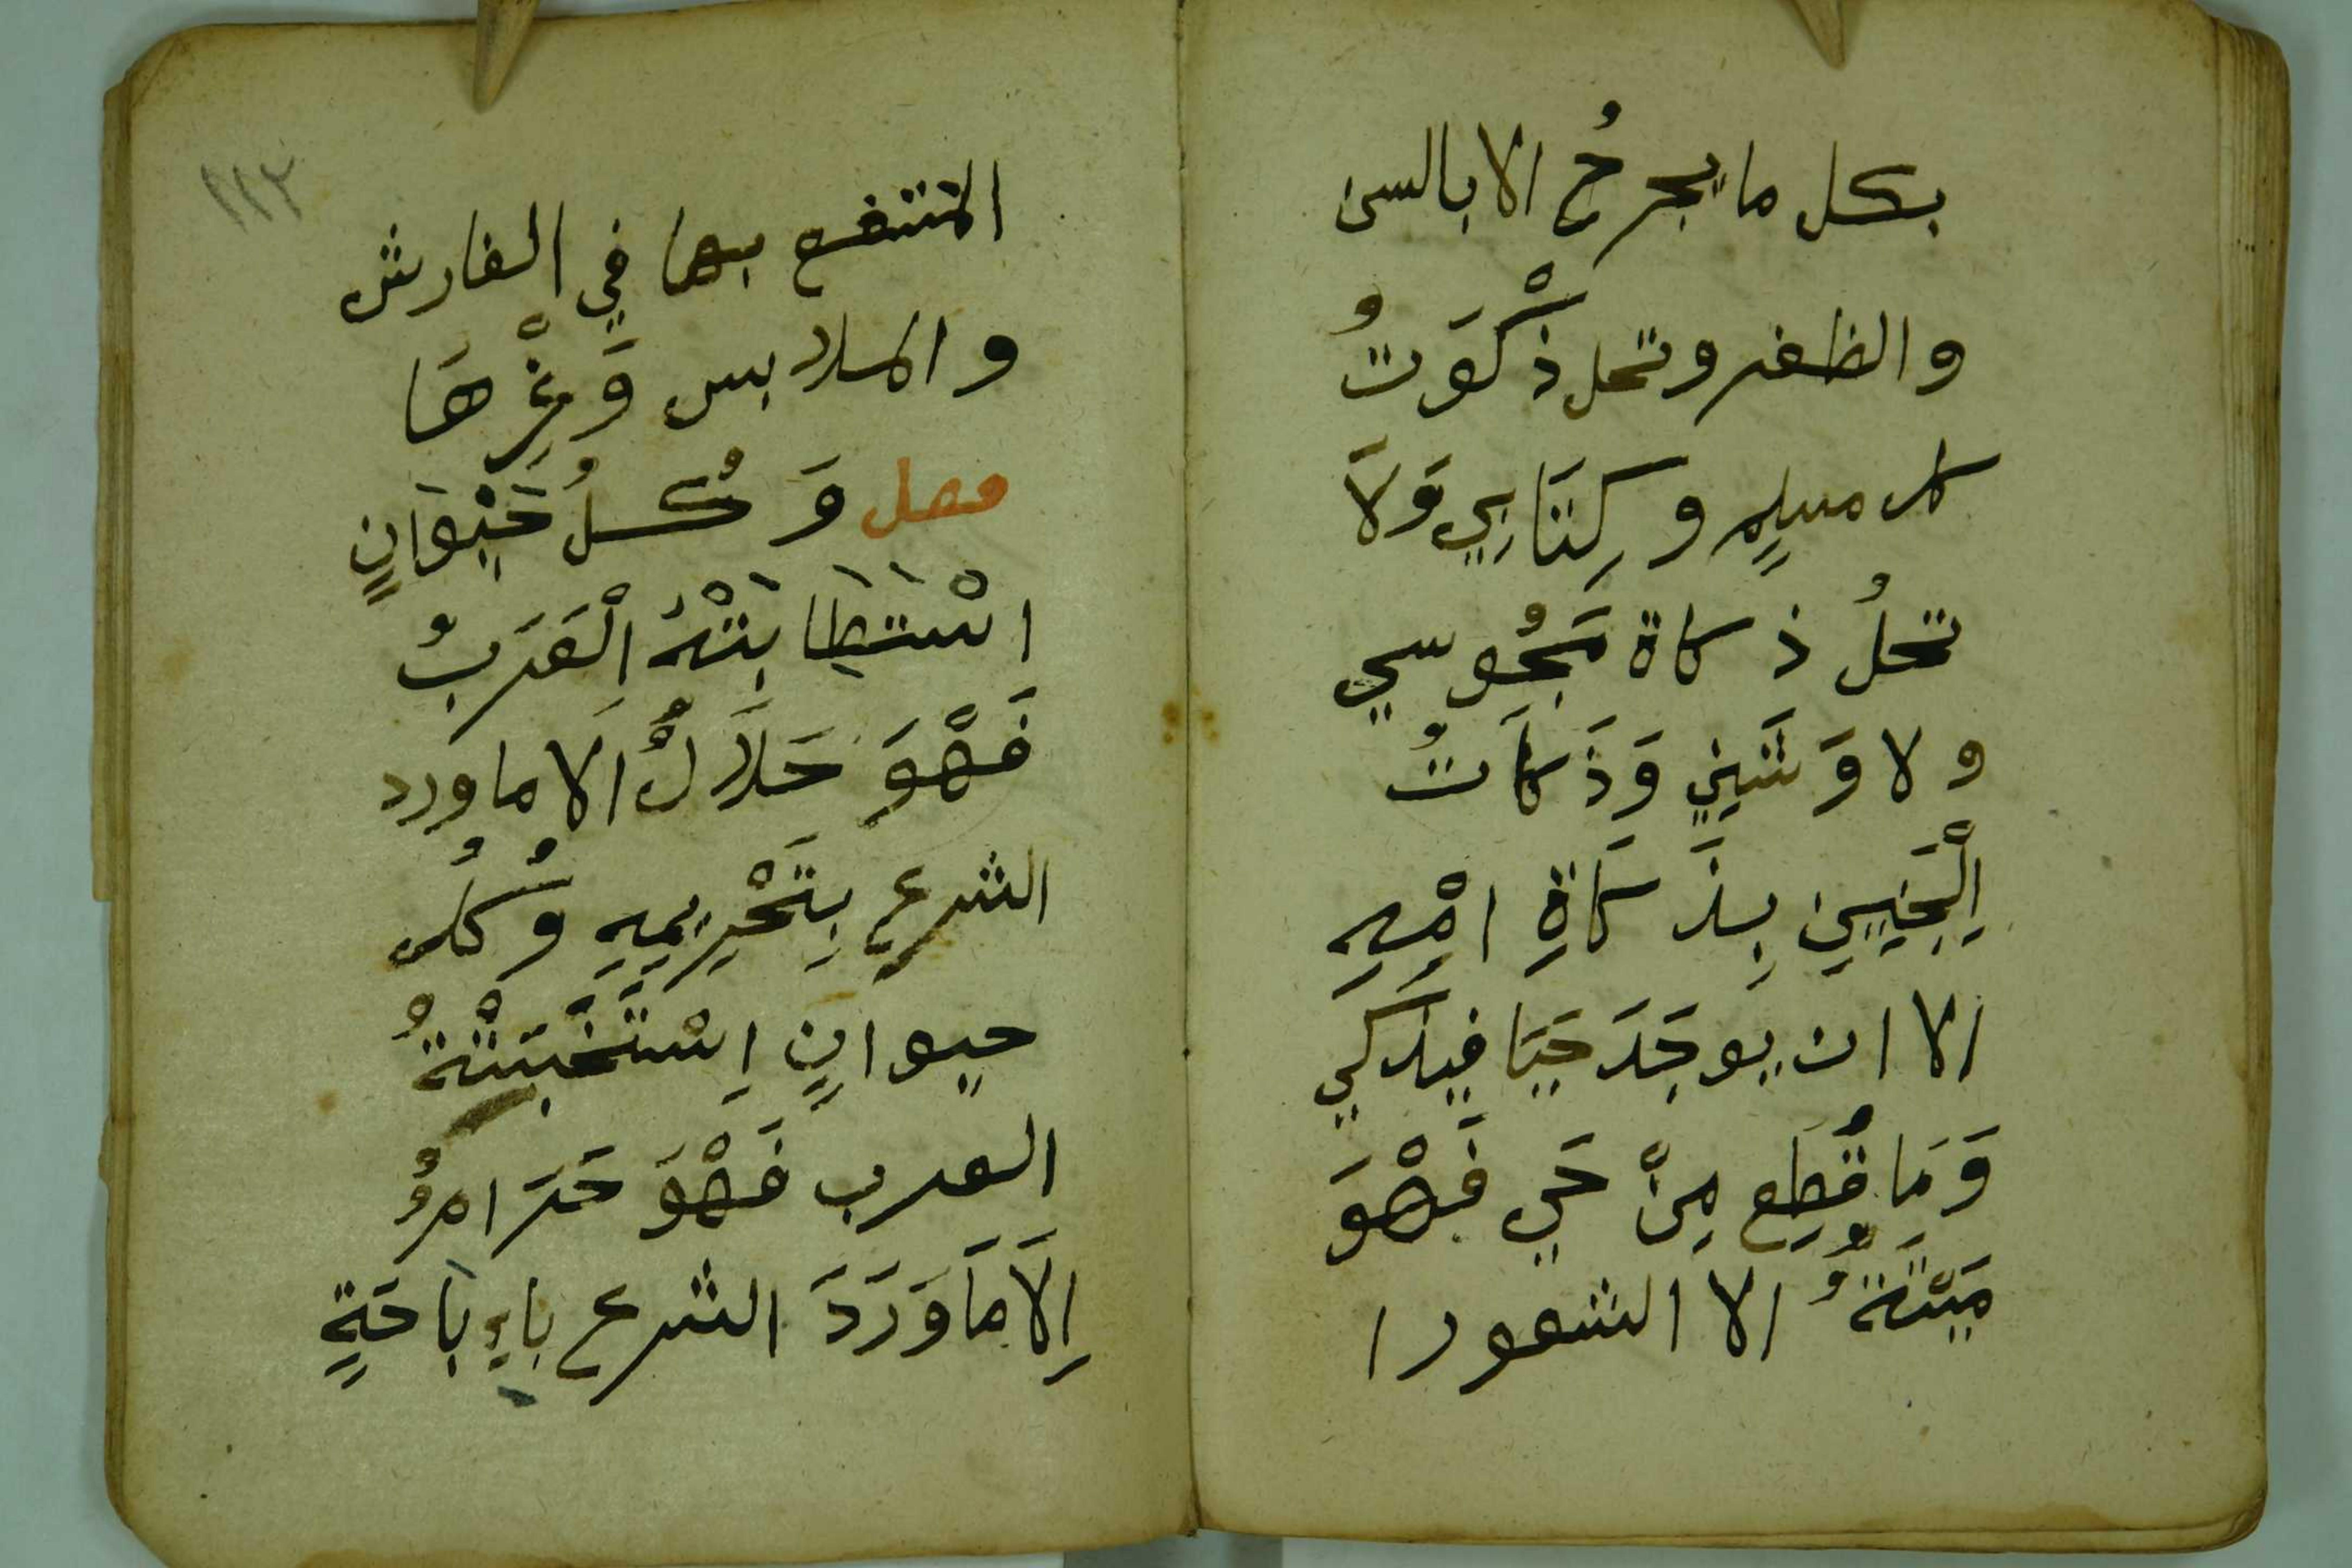 بكل ما يجرحُ الا بالسن
والظفر وتحل ذكْوَتُ
كل مسلمٍ وكِتَابِي وَلَا
تحلُ ذكاة مَجُوسي
ولا وَثَنيٍ وَذَكاَتُ
اِلْجَنِيِنِ بِذَكَاةِ امْهِ
الا ان يوجَدَ حَيَا فيذَكي
وَمَا قُطِع مِنْ حَيٍ فَهْوَ
مَيْتَةٌ الا الشعور ا
١١٣
المنتفع بها في الفارش
والملابس وَغَيْرِهَا
فصل وَكُلُ حَيْوَانٍ
اسْتَطَابَتْهُ اِلْعَرَبُ
فَهْوَ حَلَالٌ الَا ما ورد
الشرع بِتَحْرِيمِهِ وُكلُ
حيوانٍ اِسْتَخْبَثَتْهُ
العرب فَهْوَ حَرَامٌ
اِلَا مَا وَرَدَ الشرع باءِبَاحَةٍ